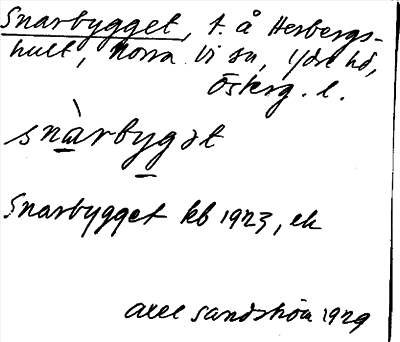 Snarbygget, t. å Herbergs-
hult, Norra Vi sn, Ydre hd,
Österg. l.
snàrbygət
Snarbygget kb 1923, ek
Axel Sandström 1929